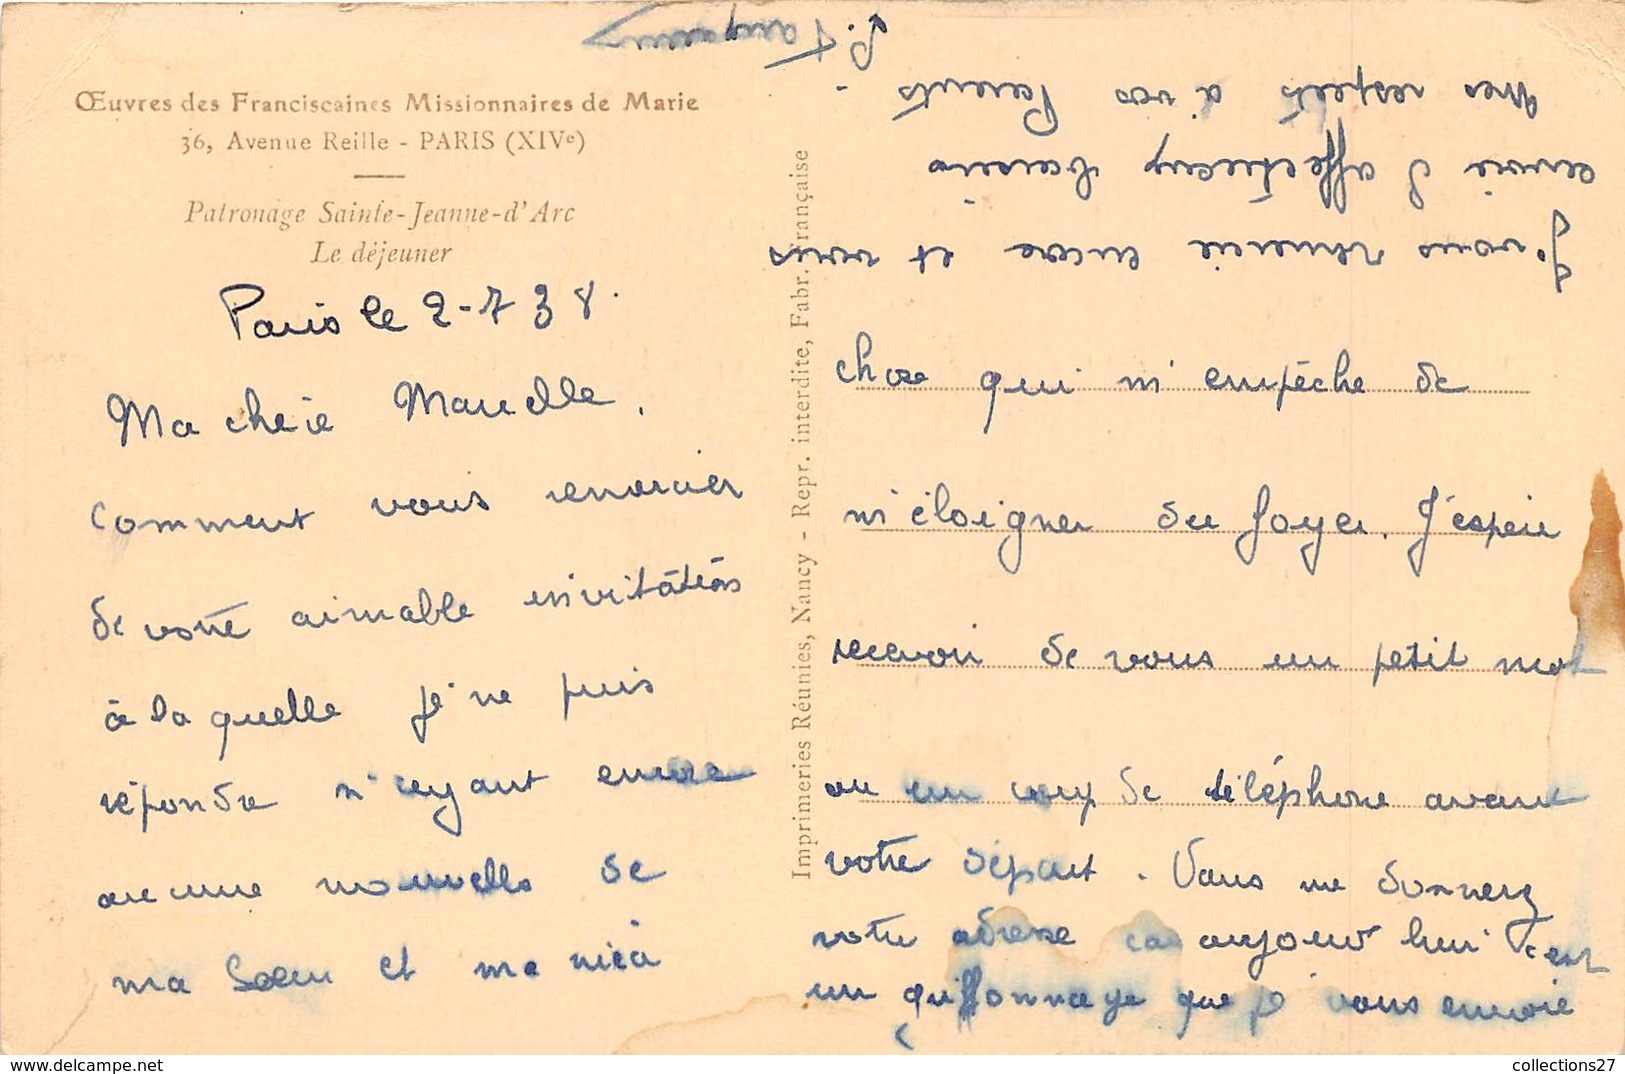 Œuvres des Franciscaines Missionnaires de Marie
36, Avenue Reille - PARIS (XIVe)
Patronage Sainte-Jeanne-d'Arc
Le déjeuner
Paris le 2-7 38.
Ma cherie Marcelle.
comment vous remercier
de votre aimable invitation
à laquelle je ne puis
répondre n'ayant encore
aucune nouvelle de
ma Soeur et ma
chose qui m'empêche de
m'éloigner du foyer. J'espère
recevoir de vous un petit mot
ou un coup de téléphone avant
votre départ. Vous me donnerez
votre adresse car aujourd'hui c'est
un griffonnage que je vous envoie
Je vous remercie encore et vous
envoie d'affectueux baisers
mes respects à vos Parents
Imprimeries Réunies, Nancy - Repr. interdite, Fabr. Française
collections27